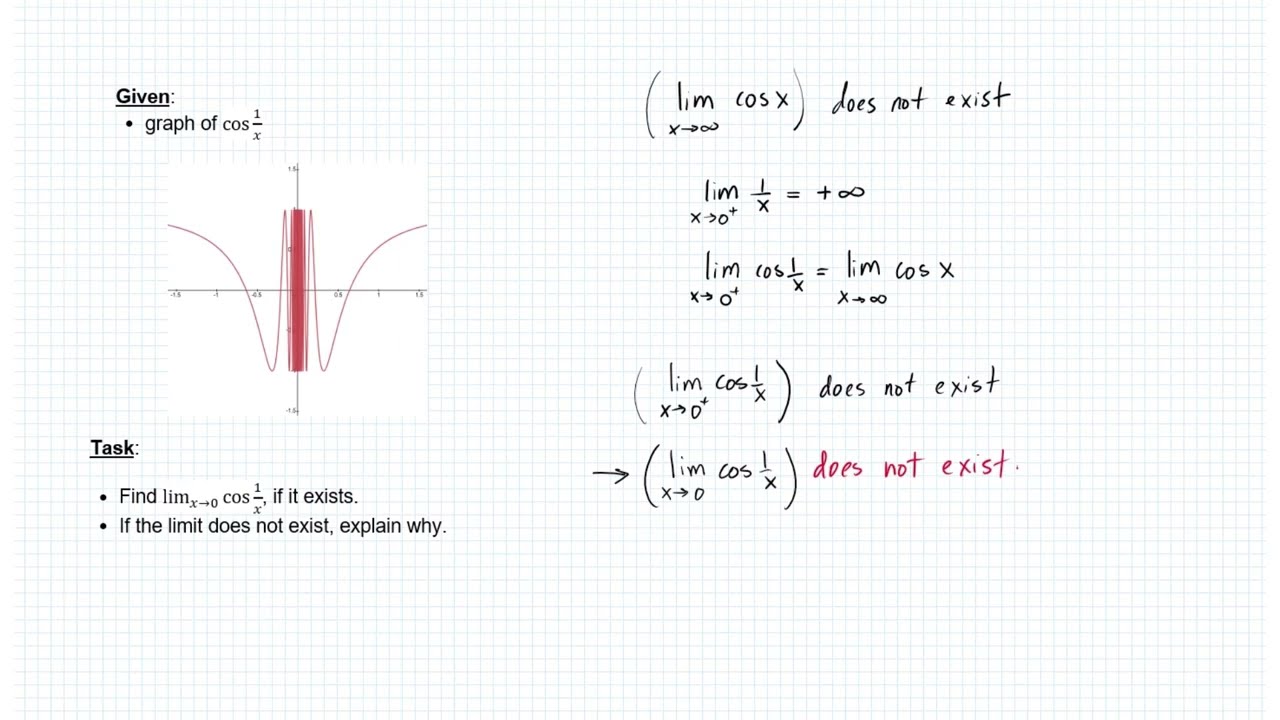 Given:
• graph of cos 1/x
1.5
-1.5 -1 -0.5 0.5 1 1.5
-1.5
Task:
• Find lim x→0 cos 1/x, if it exists.
• If the limit does not exist, explain why.
( lim x→∞ cos x ) does not exist
lim x→0⁺ 1/x = +∞
lim x→0⁺ cos 1/x = lim x→∞ cos x
( lim x→0⁺ cos 1/x ) does not exist
→ ( lim x→0 cos 1/x ) does not exist.